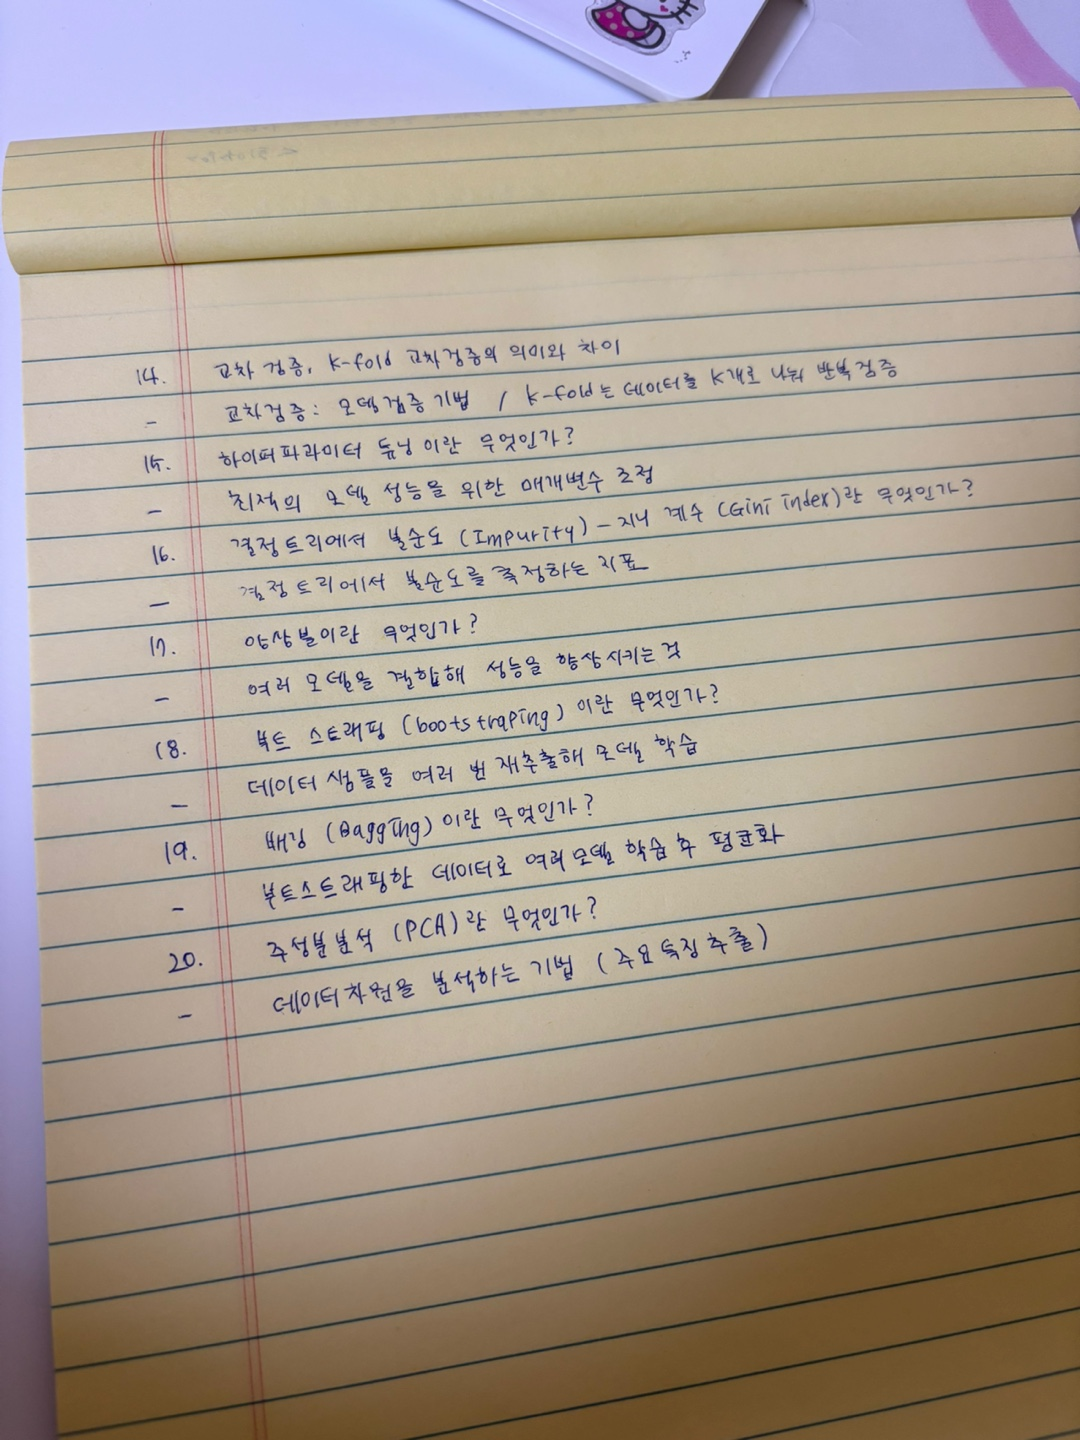 14. 교차 검증, K-fold 교차검증의 의미와 차이
- 교차검증: 모델검증 기법 / K-fold는 데이터를 K개로 나눠 반복검증
15. 하이퍼파라미터 튜닝이란 무엇인가?
- 최적의 모델 성능을 위한 매개변수 조정
16. 결정트리에서 불순도 (Impurity) - 지니 계수 (Gini index)란 무엇인가?
- 결정트리에서 불순도를 측정하는 지표
17. 앙상블이란 무엇인가?
- 여러 모델을 결합해 성능을 향상시키는 것
18. 부트 스트래핑 (bootstraping) 이란 무엇인가?
- 데이터 샘플을 여러 번 재추출해 모델 학습
19. 배깅 (Bagging) 이란 무엇인가?
- 부트스트래핑한 데이터로 여러 모델 학습 후 평균화
20. 주성분분석 (PCA)란 무엇인가?
- 데이터차원을 분석하는 기법 (주요특징추출)